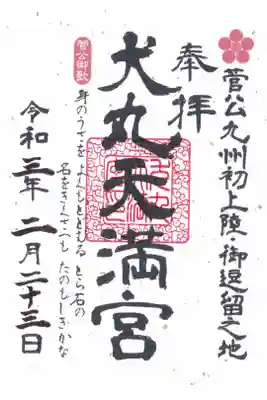 菅公九州初上陸・御逗留之地
奉拝
犬丸天満宮
菅公御歌
身のうさを よくもととむる とら石の
名をきくせつも たのもしきかな
令和三年 二月二十三日